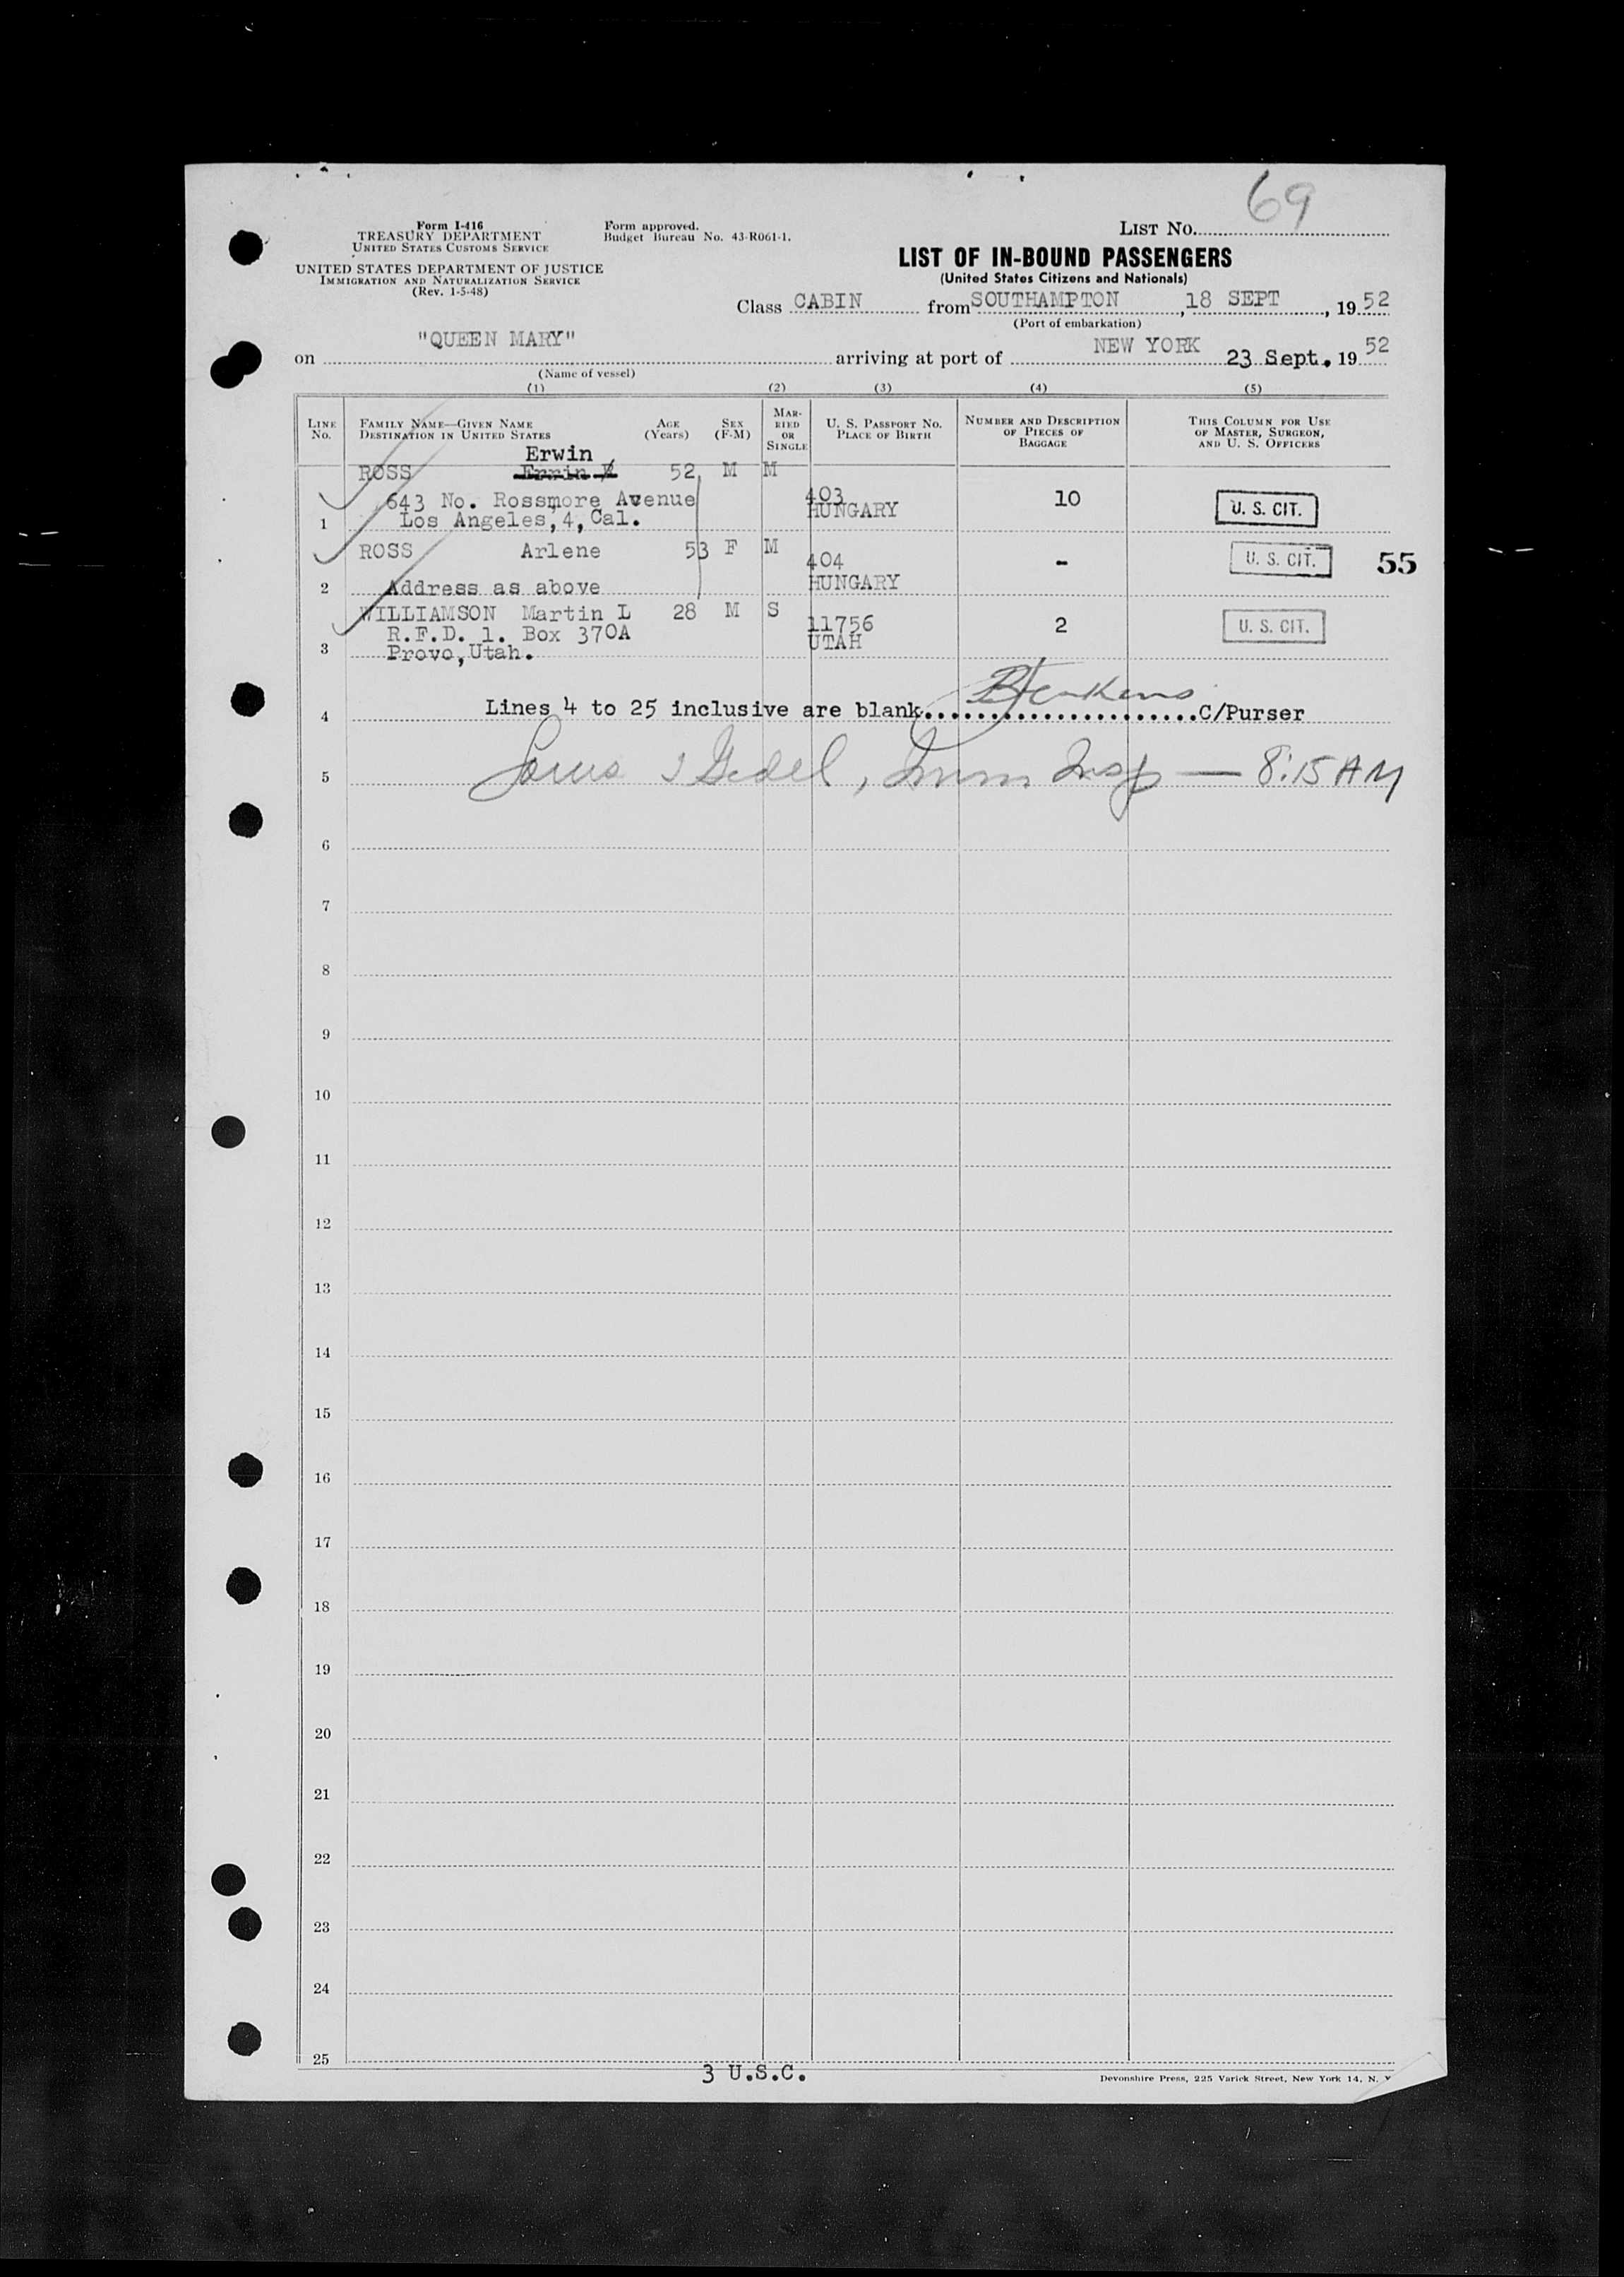 69
Form I-416
TREASURY DEPARTMENT
UNITED STATES CUSTOMS SERVICE
UNITED STATES DEPARTMENT OF JUSTICE
IMMIGRATION AND NATURALIZATION SERVICE
(Rev. 1-5-48)
Form approved.
Budget Bureau No. 43-R061-1.
LIST No.
LIST OF IN-BOUND PASSENGERS
(United States Citizens and Nationals)
Class CABIN from SOUTHAMPTON, 18 SEPT, 1952
(Port of embarkation)
on "QUEEN MARY" arriving at port of NEW YORK 23 Sept. 1952
(Name of vessel)
(1) (2) (3) (4) (5)
LINE No. FAMILY NAME—GIVEN NAME DESTINATION IN UNITED STATES AGE (Years) SEX (F-M) MARRIED OR SINGLE U. S. PASSPORT No. PLACE OF BIRTH NUMBER AND DESCRIPTION OF PIECES OF BAGGAGE THIS COLUMN FOR USE OF MASTER, SURGEON, AND U. S. OFFICERS
Erwin
ROSS Erwin 52 M M
643 No. Rossmore Avenue 403 10 U. S. CIT.
1 Los Angeles, 4, Cal. HUNGARY
ROSS Arlene 53 F M 404 - U. S. CIT. 55
2 Address as above HUNGARY
WILLIAMSON Martin L 28 M S 11756 2 U. S. CIT.
R.F.D. 1. Box 370A UTAH
3 Provo, Utah.
4 Lines 4 to 25 inclusive are blank......................C/Purser
5 Imm Insp — 8:15 AM
6
7
8
9
10
11
12
13
14
15
16
17
18
19
20
21
22
23
24
25
3 U.S.C.
Devonshire Press, 225 Varick Street, New York 14, N. Y